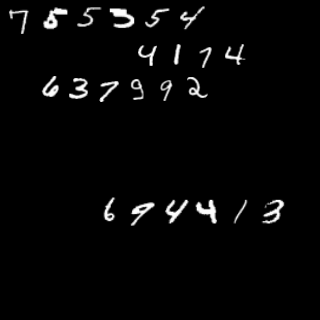 755354
4174
637992
694413